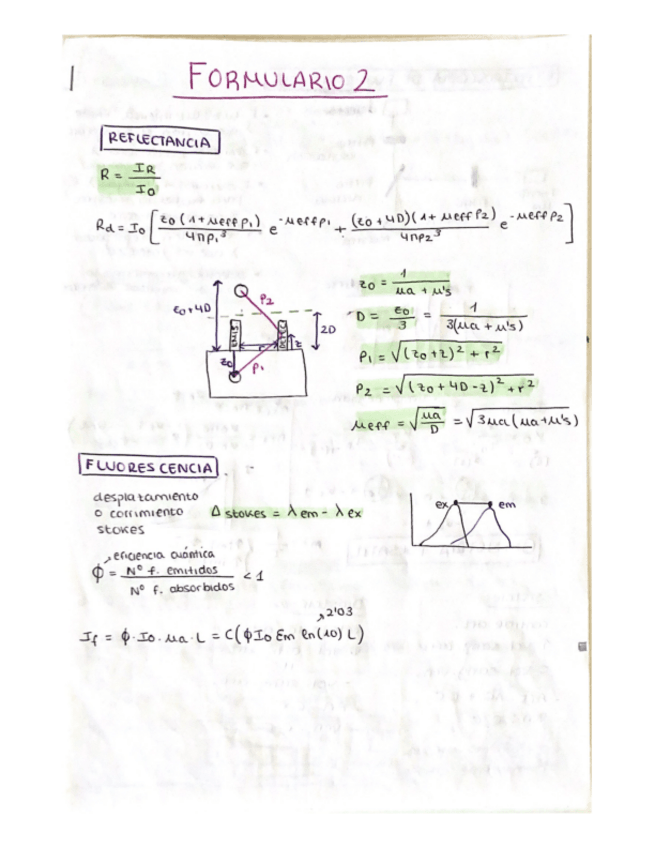 1
FORMULARIO 2
REFLECTANCIA
R = IR / I0
Rd = I0 [ z0 (1 + μeff ρ1) / 4πρ1³ e^-μeffρ1 + (z0 + 4D)(1 + μeff ρ2) / 4πρ2³ e^-μeffρ2 ]
z0 + 4D
ρ2
2D
r
z
z0
ρ1
z0 = 1 / μa + μ's
D = z0 / 3 = 1 / 3(μa + μ's)
ρ1 = √(z0 + z)² + r²
ρ2 = √(z0 + 4D - z)² + r²
μeff = √μa / D = √3μa (μa + μ's)
FLUORESCENCIA
desplazamiento
o corrimiento
stokes
Δ stokes = λ em - λ ex
ex
em
eficiencia cuántica
Φ = Nº f. emitidos / Nº f. absorbidos < 1
2'03
If = ϕ · I0 · μa · L = C(ϕ I0 Em ln(10) L)